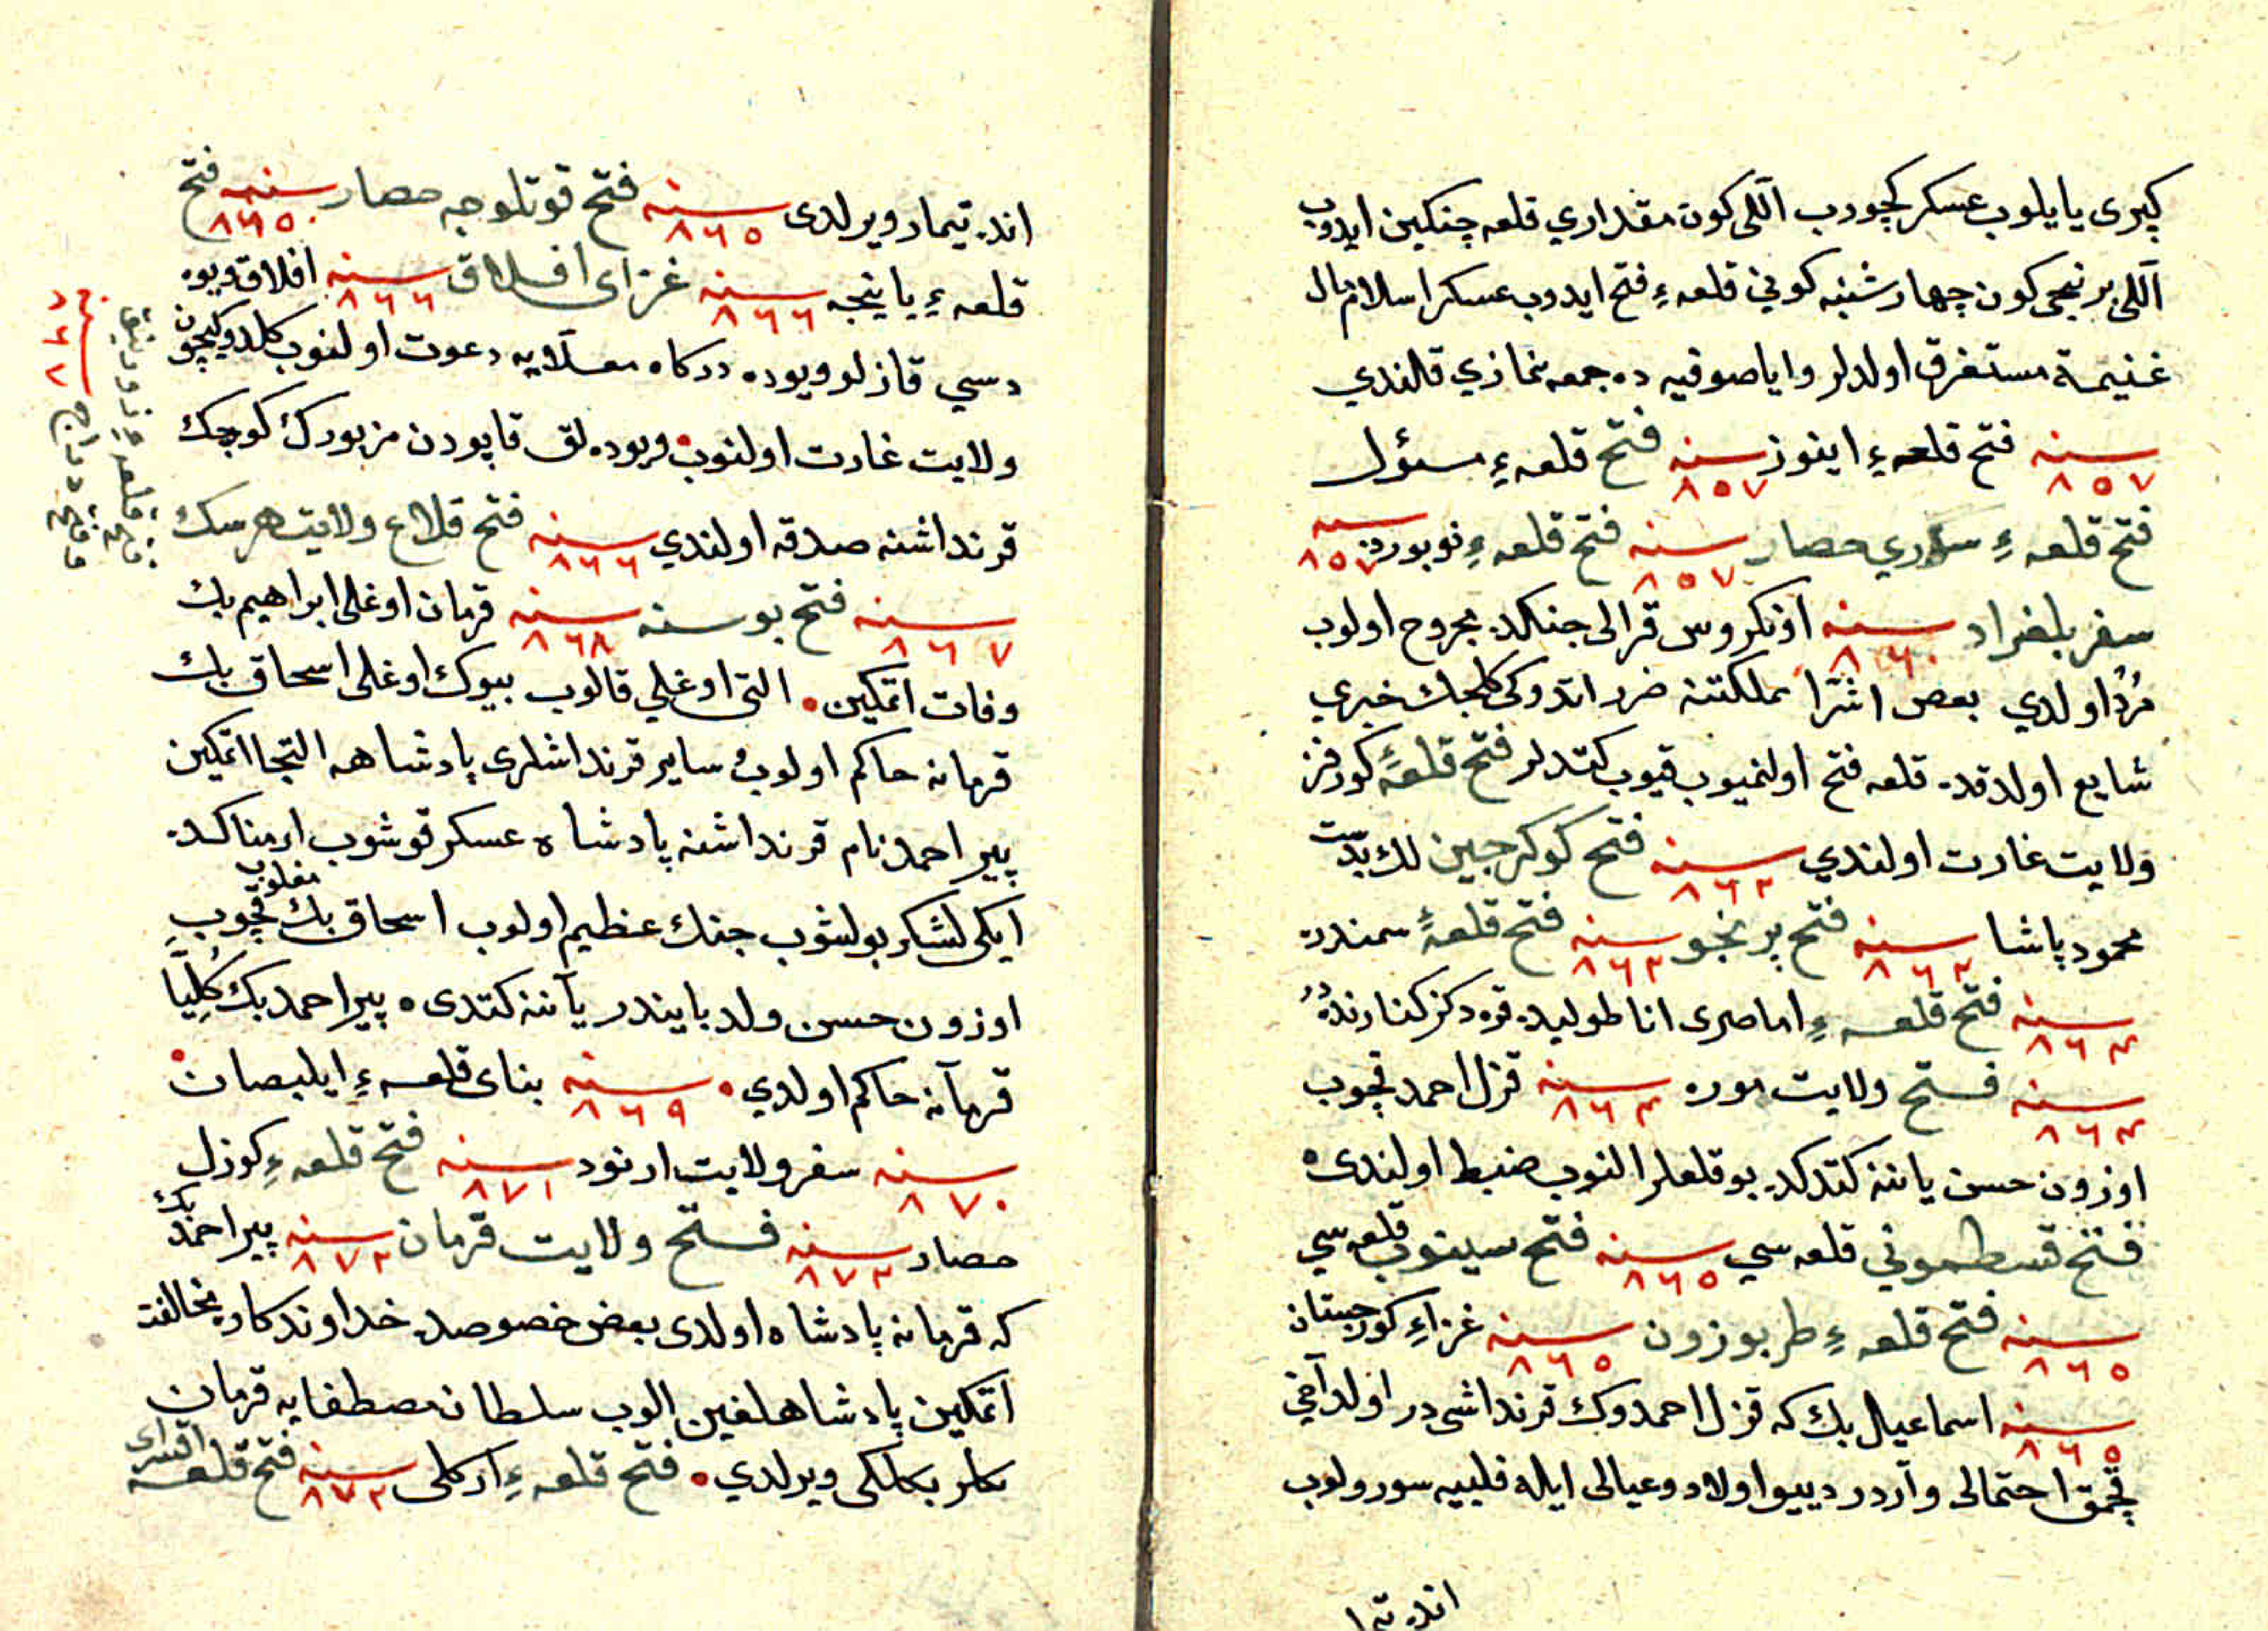 كپری یاپیلوب عسكر كچوروب اللی كون مقداری قلعه جنكین ایدوب
اللی برنجی كون چهارشنبه كوني قلعهٔ فتح ایدوب عسكر اسلام مال
غنیمة مستغرق اولدلر و ایاصوفیه ده جمعه نمازي قلندي
سنه ٨٥٧ فتح قلعهٔ اینوز سنه ٨٥٧ فتح قلعهٔ
فتح قلعهٔ حصار سنه ٨٥٧ فتح قلعهٔ نوبورده سنه ٨٥٧
سفر بلغراد سنه ٨٦٠ اونكروس قرالی جنكده مجروح اولوب
مرد اولدي بعض اشرا مملكتنه ضرر اتدوكی كلجك خبری
شایع اولدقده قلعه فتح اولنمیوب قیوب كتدلر فتح قلعهٔ كورفز
ولایت غارت اولندي سنه ٨٦٢ فتح كوكرجین لك بدست
محمود پاشا سنه ٨٦٢ فتح سنه ٨٦٢ فتح قلعهٔ سمندره
سنه ٨٦٤ فتح قلعهٔ اماصری اناطولیده قره دكز كنارنده در
سنه ٨٦٤ فتح ولایت موره سنه ٨٦٤ قزل احمد قچوب
اوزون حسن یاننه كتدكده بو قلعلر النوب ضبط اولندی
فتح قسطموني قلعه سي سنه ٨٦٥ فتح سینوب قلعه سي
سنه ٨٦٥ فتح قلعهٔ طربوزون سنه ٨٦٥ غزاءِ كورجستان
سنه ٨٦٥ اسماعیل بك كه قزل احمدوك قرنداشی در اولدآخي
قچمق احتمالی واردر دییو اولاد و عیالی ایله فلبیه سورولوب
انده تیما
انده تیمار ویرلدی سنه ٨٦٥ فتح قوتلوجه حصار سنه ٨٦٥ فتح
قلعهٔ یاینجه سنه ٨٦٦ غزای افلاق سنه ٨٦٦ افلاق ویوه
دسي قازلو ویوده دركاه معلایه دعوت اولنوب كلمدوكیچون
ولایت غارت اولنوب ویوده لق قاپودن مزبورك كوچك
قرنداشنه صدقه اولندي سنه ٨٦٦ فتح قلاع ولایت هرسك
سنه ٨٦٧ فتح بوسنه سنه ٨٦٨ قرمان اوغلی ابراهیم بك
وفات اتمكین التی اوغلي قالوب بیوك اوغلی اسحاق بك
قرمانه حاكم اولوب سایر قرنداشلری پادشاهه التجا اتمكین
پیر احمد نام قرنداشنه پادشاه عسكر قوشوب ارمناكده
ایكی لشكر بولشوب جنك عظیم اولوب اسحاق بك مغلوب قچوب
اوزون حسن ولد بایندر یاننه كتدی پیر احمد بك كلیًا
قرمانه حاكم اولدي سنه ٨٦٩ بنای قلعهٔ ایلبصان
سنه ٨٧٠ سفر ولایت ارنود سنه ٨٧١ فتح قلعهٔ كوزل
حصار سنه ٨٧٢ فتح ولایت قرمان سنه ٨٧٢ پیر احمد بك
كه قرمانه پادشاه اولدی بعض خصوصده خداوندكاره مخالفت
اتمكین پادشاهلغین الوب سلطان مصطفایه قرمان
بكلر بكلكی ویرلدي فتح قلعهٔ اركلی سنه ٨٧٢ فتح قلعهٔ اقسرای